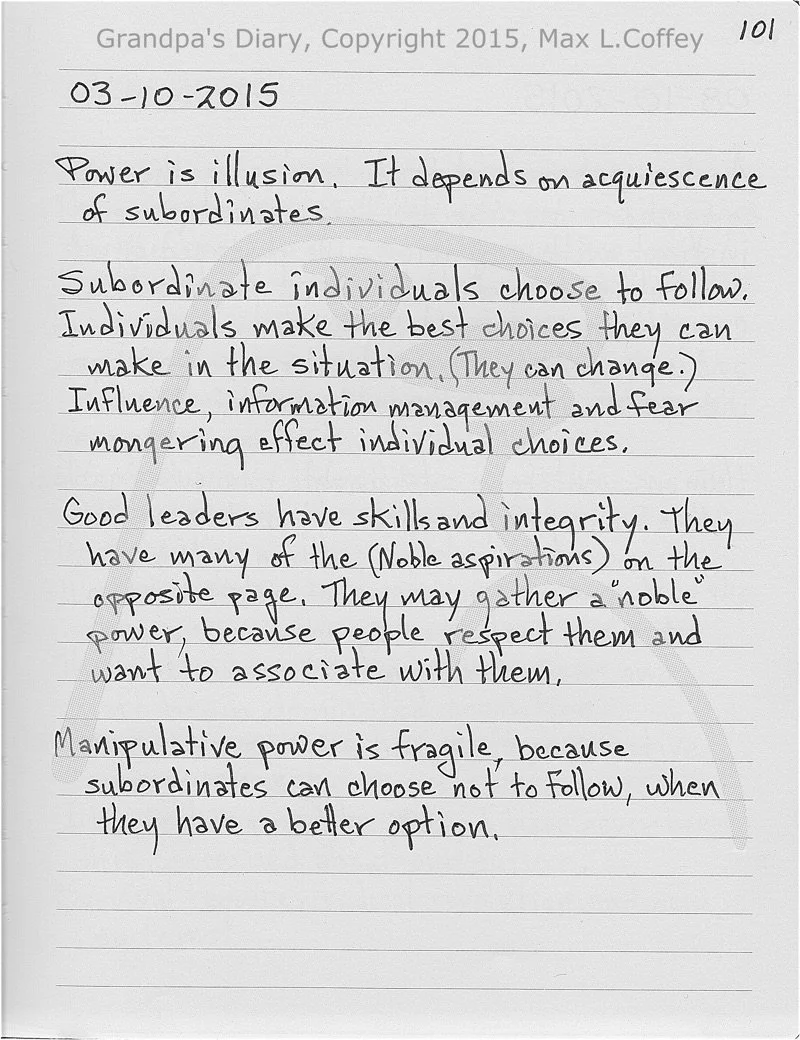 101
Grandpa's Diary, Copyright 2015, Max L.Coffey
03-10-2015
Power is illusion. It depends on acquiescence
of subordinates.
Subordinate individuals choose to follow.
Individuals make the best choices they can
make in the situation. (They can change.)
Influence, information management and fear
mongering effect individual choices.
Good leaders have skills and integrity. They
have many of the (Noble aspirations) on the
opposite page. They may gather a "noble"
power, because people respect them and
want to associate with them.
Manipulative power is fragile, because
subordinates can choose not to follow, when
they have a better option.